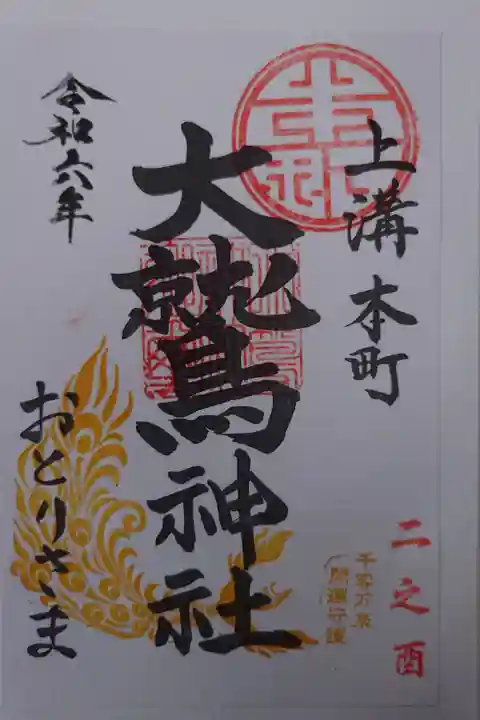 上溝本町
二之酉
大鷲神社
千客万来
開運守護
令和六年
おとりさま